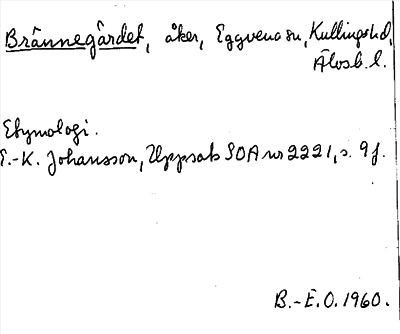 Brännegärdet, åker, Eggvena sn, Kullings hd,
Älvsb. l.
Etymologi.
E.-K. Johansson, Uppsats SOA nr 2221, s. 9 f.
B.-E.O. 1960.